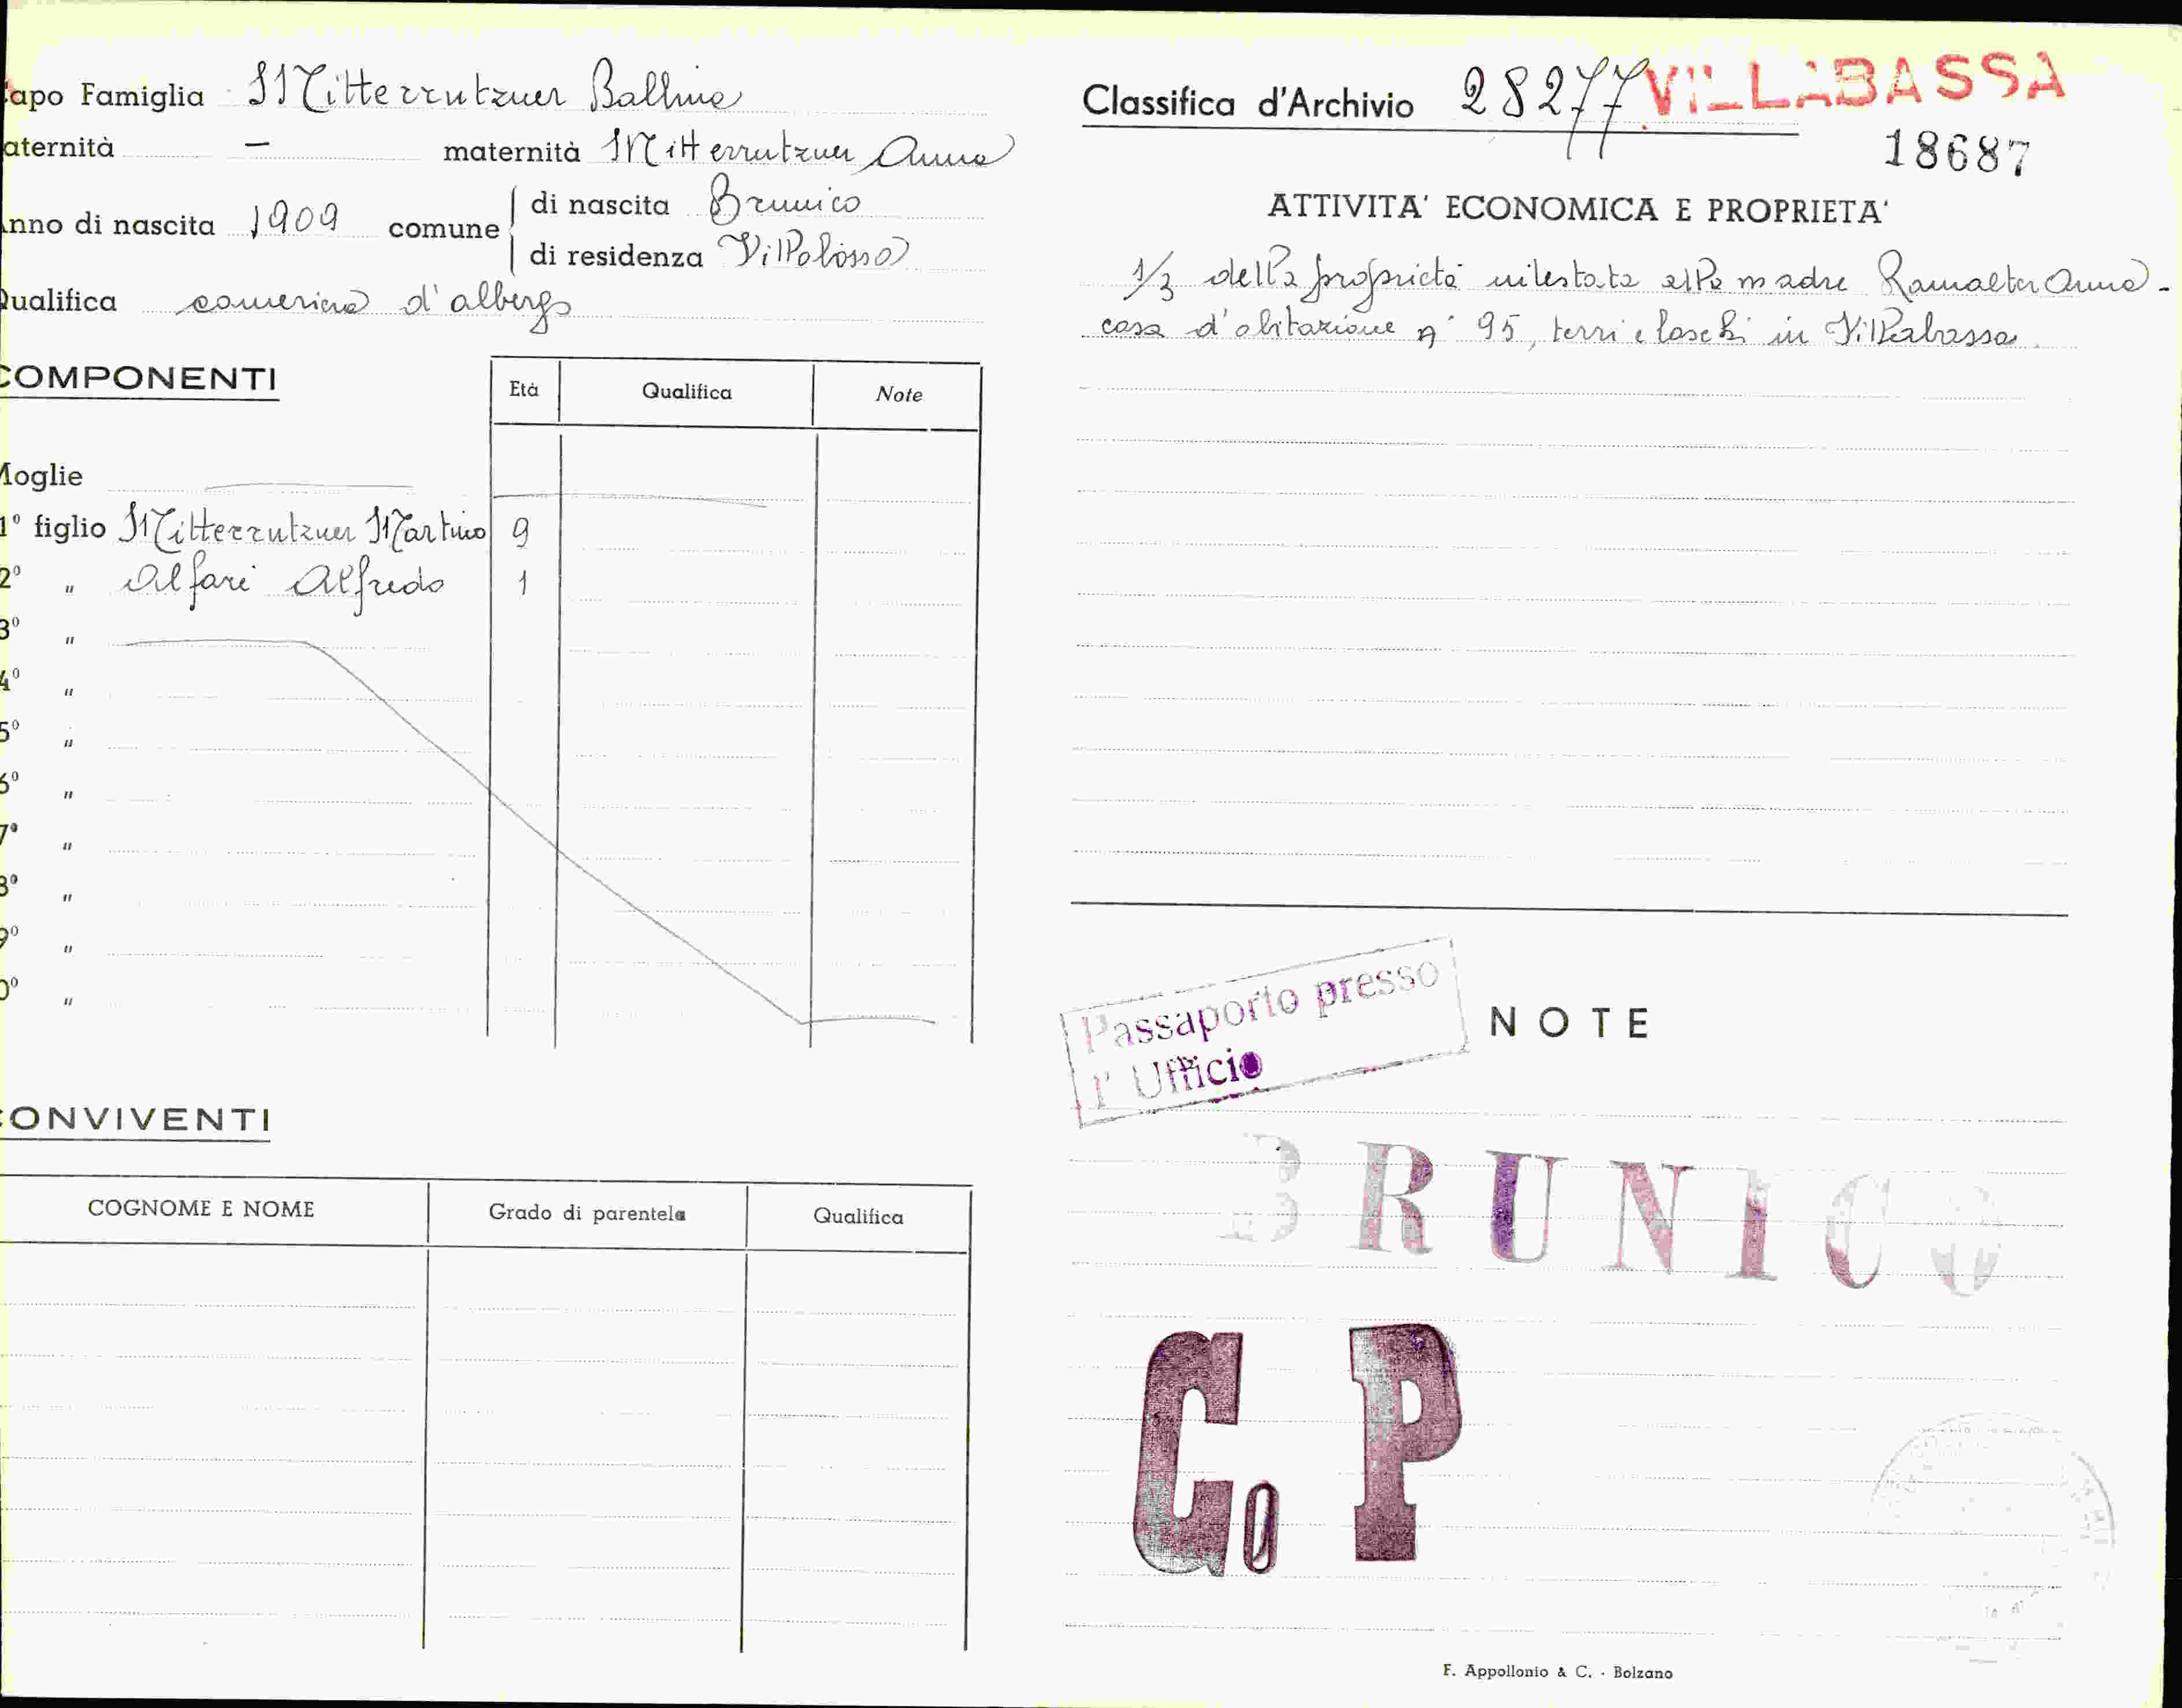 apo Famiglia Mitterrutzner Balbina
aternità — maternità Mitterrutzner Anna
nno di nascita 1909 comune di nascita Brunico
di residenza Villabassa
Qualifica cameriera d'albergo
COMPONENTI
Età Qualifica Note
Moglie
1° figlio Mitterrutzner Martino 9
2° " Alfarè Alfredo 1
3° "
4° "
5° "
6° "
7° "
8° "
9° "
0° "
CONVIVENTI
COGNOME E NOME Grado di parentela Qualifica
Classifica d'Archivio 28277 VILLABASSA
18687
ATTIVITA' ECONOMICA E PROPRIETA'
1/3 della proprietà intestata alla madre Anna -
casa d'abitazione n° 95, terri e boschi in Villabassa.
Passaporto presso
l' Ufficio
NOTE
BRUNICO
Co P
F. Appollonio & C. - Bolzano